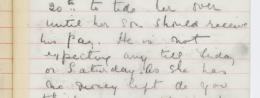 20th to tide her over
until her son should receive
his pay. He is not
expecting any till Friday
or Saturday. As she has
no money left do you